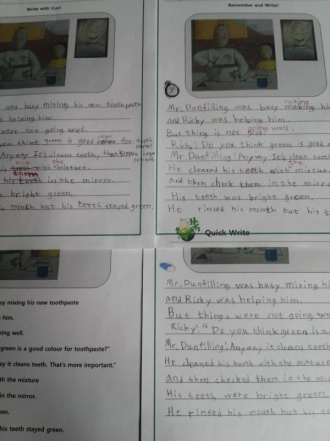 Write with Eye!
was busy mixing his new toothpaste
helping him.
were not going well.
you think green is good color for
Anyway It's cleans teeth, That's more
teeth with the mixture.
them
his teeth in the mirror.
bright green.
mouth but his teeth stayed green.
Remember and Write!
mixing
Mr. Dunfilling was busy making his
and Ricky was helping him.
going well.
But thing is not
Ricky! Do you think green is good
Mr. Dunfilling Anyway It's clean
the
He cleaned his teeth with mixture
and then check them in the mirror
His teeth was bright green.
He rinsed his mouth but his t
Quick Write
y mixing his new toothpaste
him.
ing well.
green is a good colour for toothpaste?"
ay it cleans teeth. That's more important."
with the mixture
in the mirror.
en.
his teeth stayed green.
Mr. Dunfilling was busy mixing hi
and Ricky was helping him.
But things were not going
Ricky: "Do you think green is a
Mr. Dunfilling: Anyway it cleans teeth
He cleaned his teeth with the mixture
and then checked them in the mirror
His teeth were bright green.
He rinsed his mouth but his